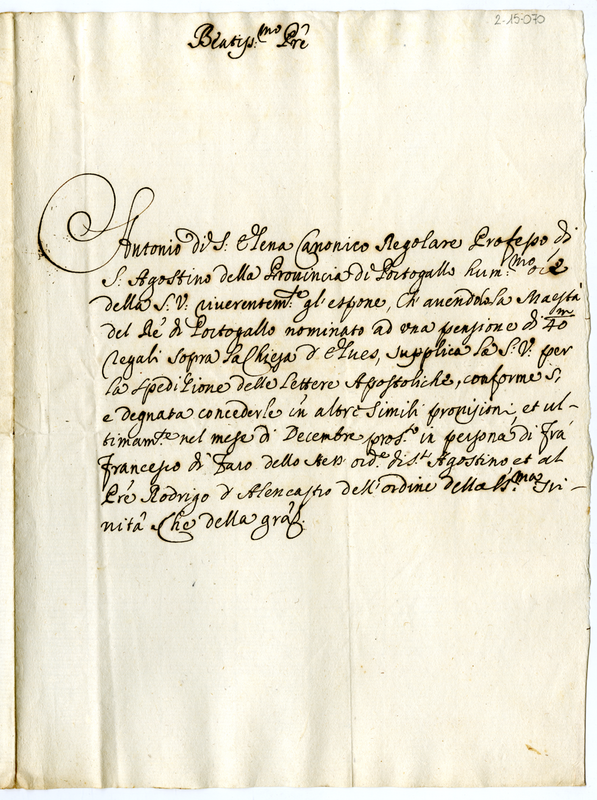 2-15-070
Beatiss:mo Pre
Antonio di S: Elena Canonico Regolare Professo di
S: Agostino della Provincia di Portogallo hum:mo ore
della S: V: riverentemte gl'espone, Ch'avendola la Maestà
del Rè di Portogallo nominato ad una pensione di 40m
regali sopra la Chiesa d'Elves, supplica la S: V: per
la spedizione delle Lettere Apostoliche, conforme s'
e degnata concederle in altre simili provisioni, et ul-
timamte nel mese di Decembre prosto in persona di frà
francesco di Faro dello ord.e di S.t Agostino et al
Pre Rodrigo d'Alencastro dell'ordine della SS:ma Tri-
nità Che della grã.